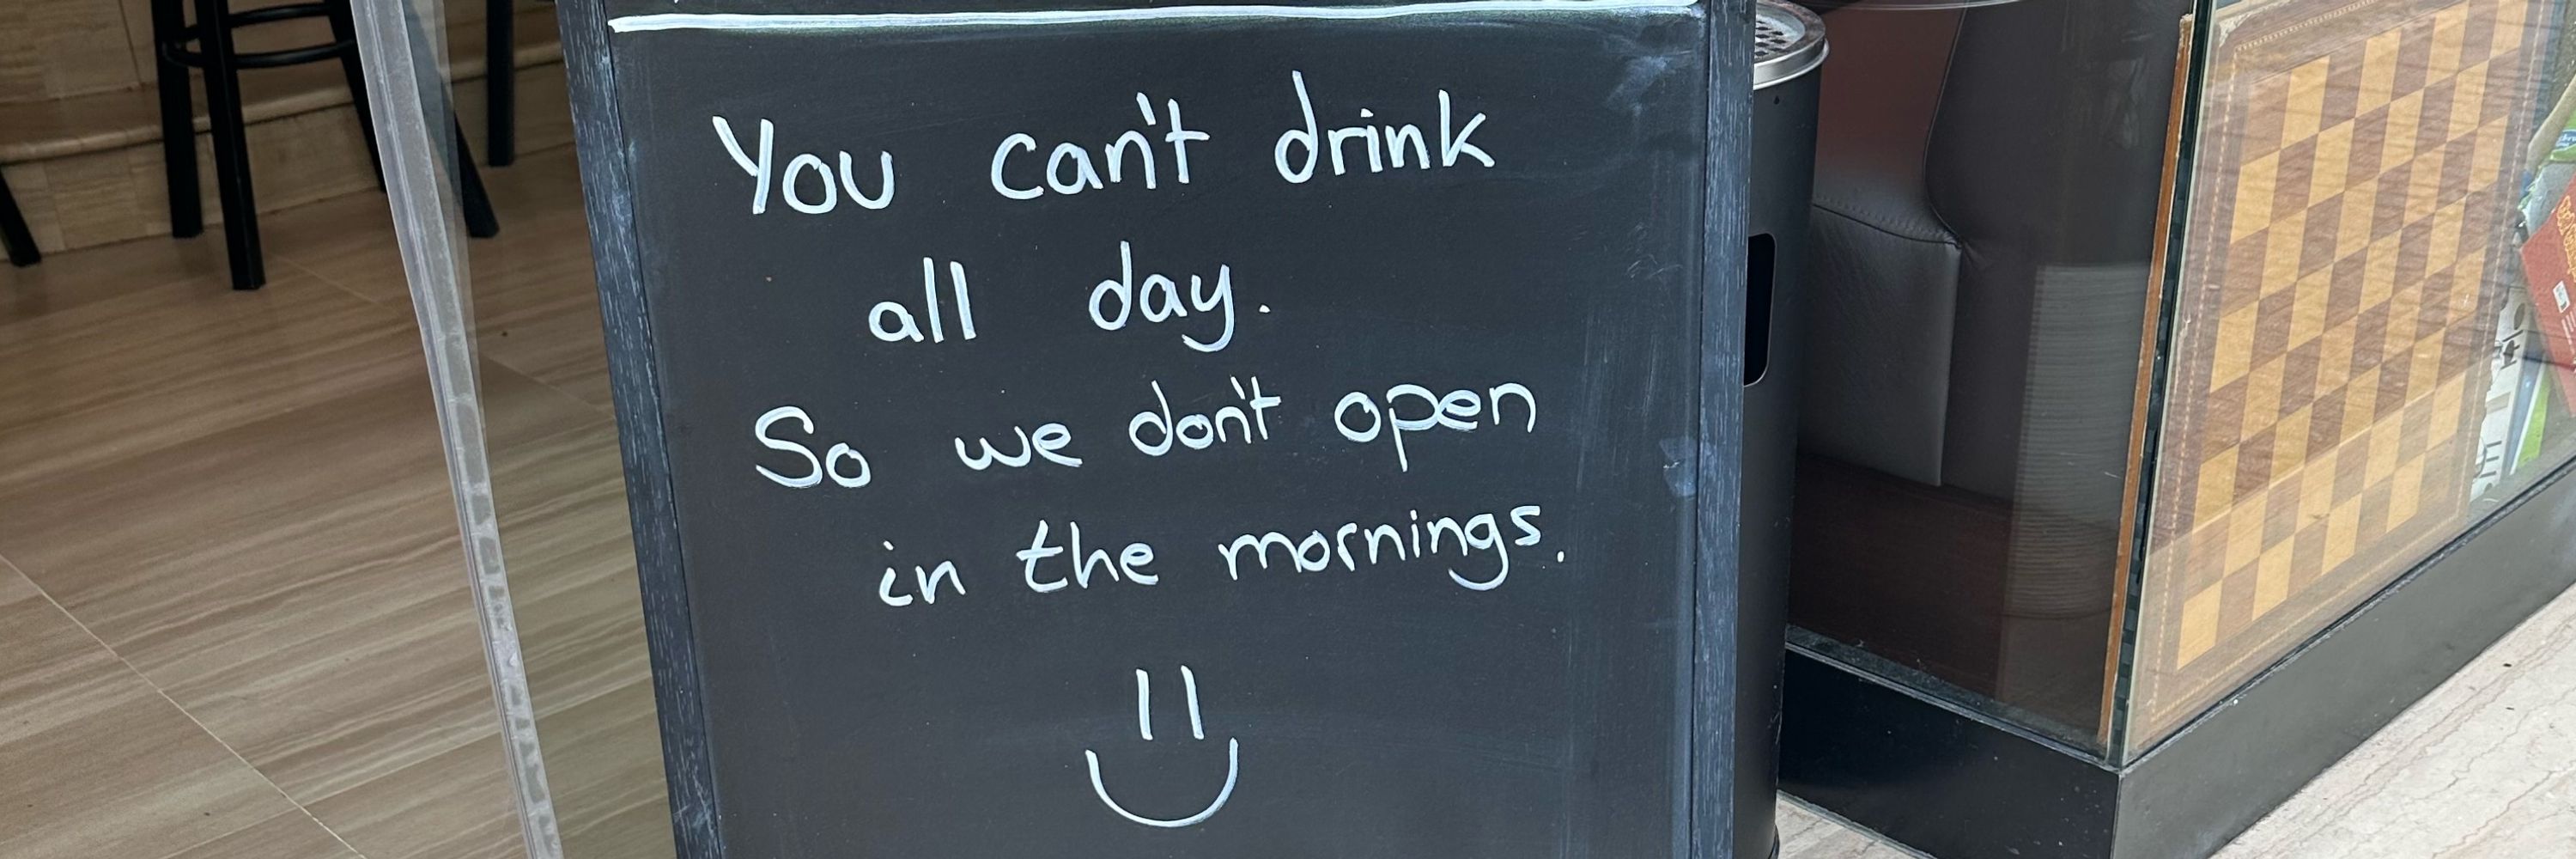 You can't drink
all day.
So we don't open
in the mornings.